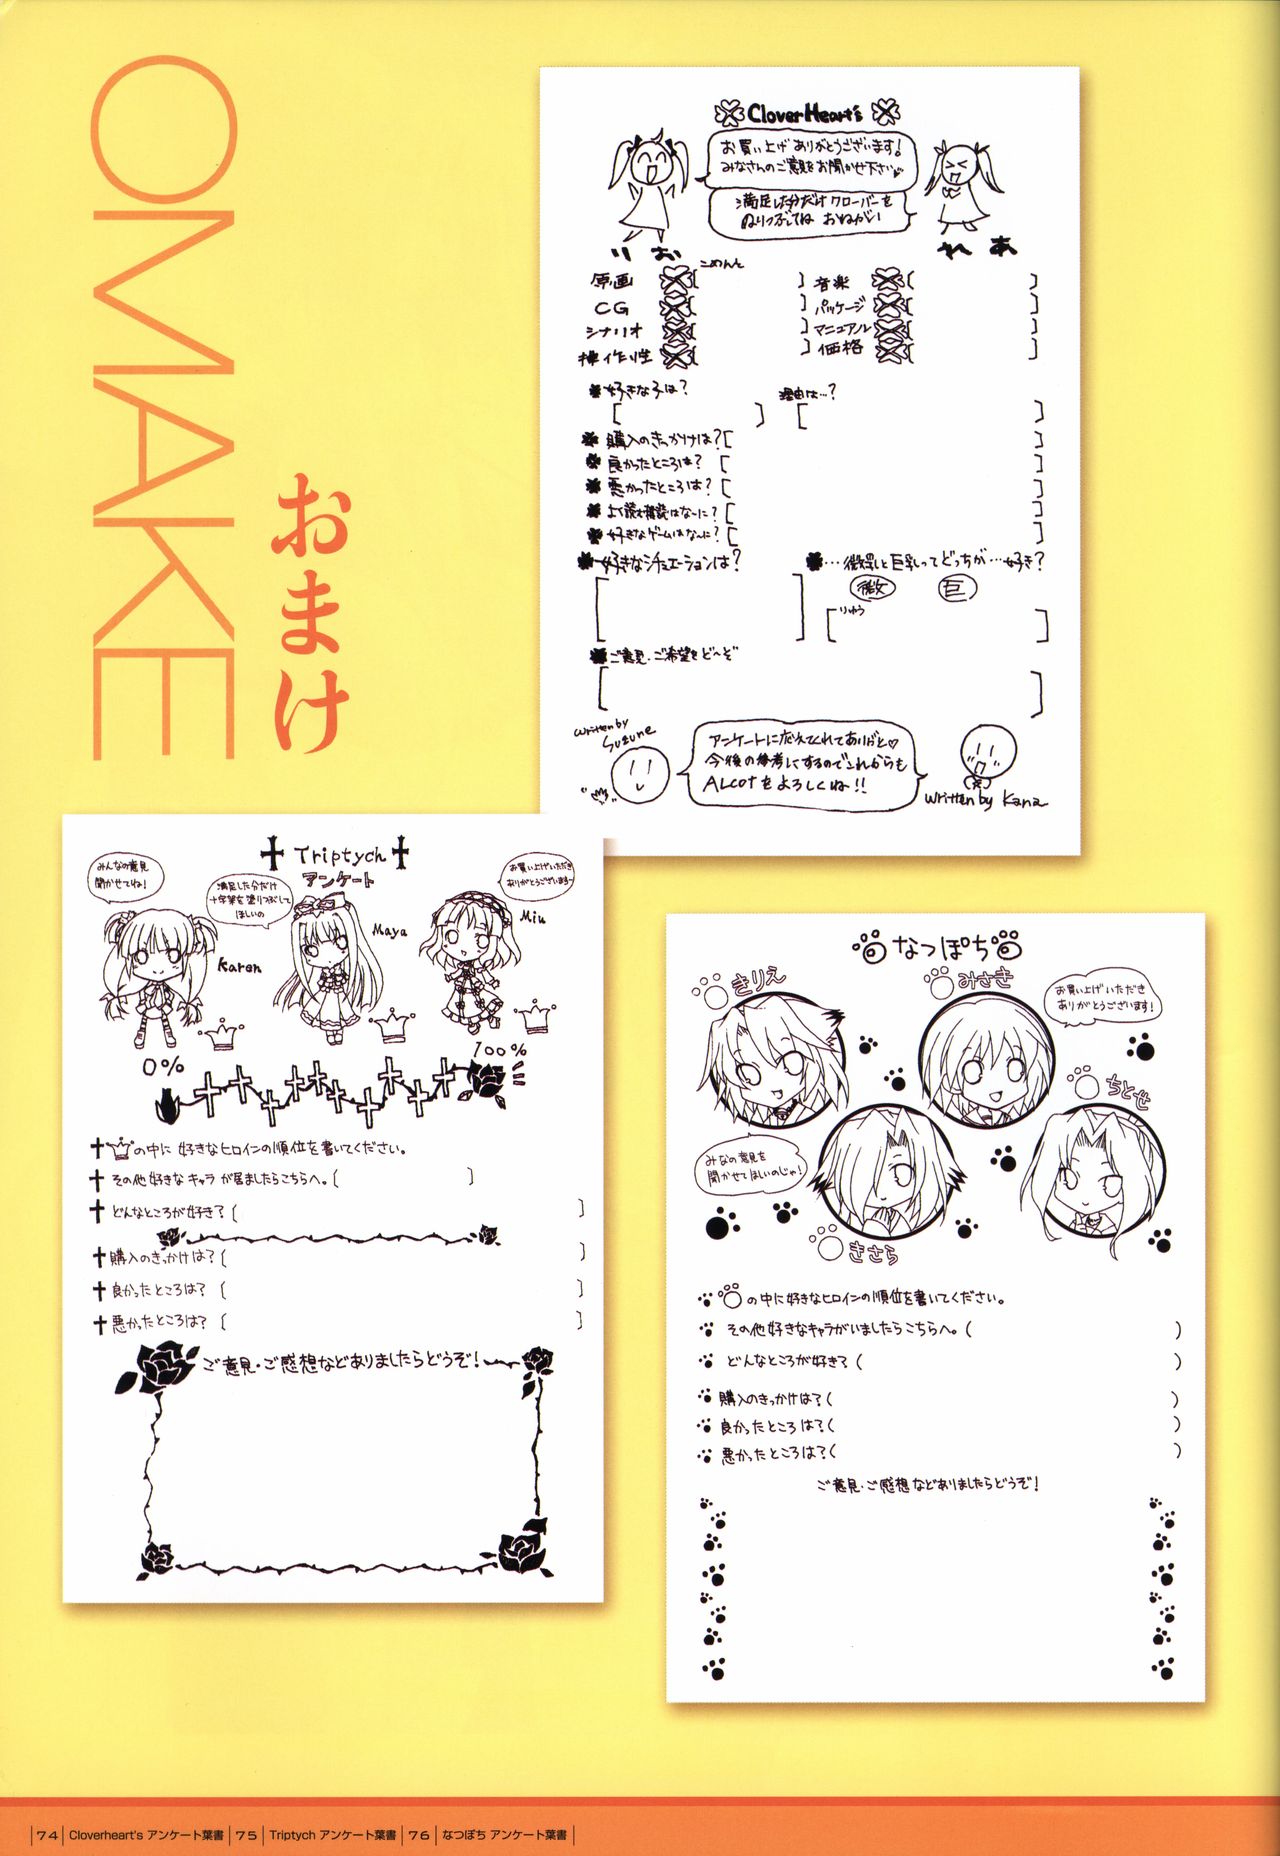 OMAKE
おまけ
Clover Heart's
お買い上げありがとうございます!
みなさんのご意見をお聞かせ下さい♥
満足した分だけクローバーを
ぬりつぶしてね おねがい
りお
れあ
こめんと
原画 [ ] 音楽 [ ]
CG [ ] パッケージ [ ]
シナリオ [ ] マニュアル [ ]
操作性 [ ] 価格 [ ]
好きな子は? 理由は…?
[ ] [ ]
購入のきっかけは? [ ]
良かったところは? [ ]
悪かったところは? [ ]
よく読む雑誌はな〜に? [ ]
好きなゲームはな〜に? [ ]
好きなシチュエーションは? …微乳と巨乳ってどっちが…好き?
微 巨
りゆう
ご意見・ご希望をど〜ぞ
written by
Suzune
アンケートに応えてくれてありがと♡
今後の参考にするのでこれからも
ALCOTをよろしくね!!
written by Kana
Triptych
アンケート
みんなの意見
聞かせてね!
満足した分だけ
十字架を塗りつぶして
ほしいの
お買い上げいただき
ありがとうございますー
Karen
Maya
Miu
0%
100%
の中に 好きなヒロインの順位を書いてください。
その他好きなキャラが居ましたらこちらへ。[ ]
どんなところが好き? [ ]
購入のきっかけは? [ ]
良かったところは? [ ]
悪かったところは? [ ]
ご意見・ご感想などありましたらどうぞ!
なつぽち
きりえ
みさき
お買い上げいただき
ありがとうございます!
ちとせ
みなの意見を
聞かせてほしいのじゃ!
きさら
の中に好きなヒロインの順位を書いてください。
その他好きなキャラがいましたらこちらへ。( )
どんなところが好き? ( )
購入のきっかけは? ( )
良かったところは? ( )
悪かったところは? ( )
ご意見・ご感想などありましたらどうぞ!
|74| Cloverheart's アンケート葉書 |75| Triptych アンケート葉書 |76| なつぽち アンケート葉書 |